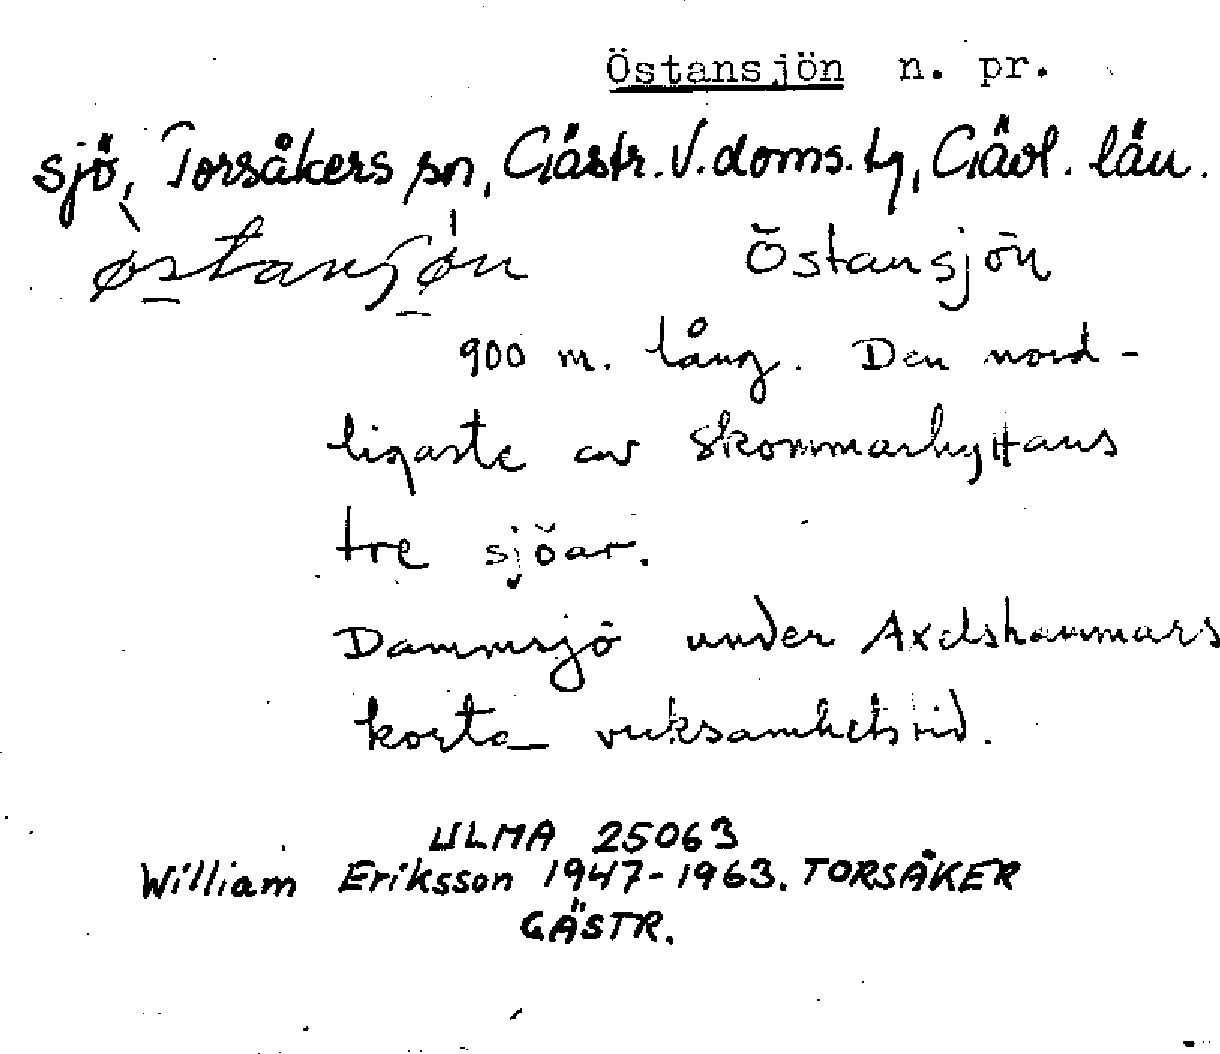 Östansjön n. pr.
sjö, Torsåkers sn, Gästr. V. doms. tg, Gävl. län.
østansjøn Östansjön
900 m. lång. Den nord-
ligaste av Skommarhyttans
tre sjöar.
Dammsjö under Axelshammars
korta verksamhetstid.
ULMA 25063
William Eriksson 1947-1963. TORSÅKER
GÄSTR.